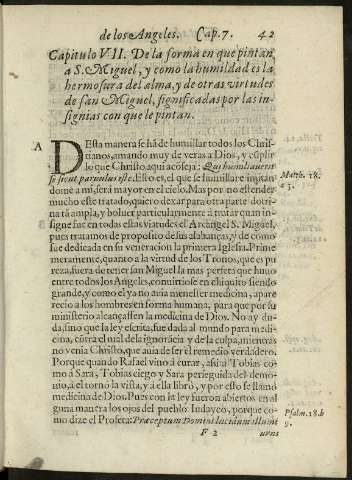 de los Angeles. Cap. 7. 42
Capitulo VII. De la forma en que pintan
a S. Miguel, y como la humildad es la
hermosura del alma, y de otras virtudes
de san Miguel, significadas por las in-
signias con que le pintan.
A
DEsta manera se há de humillar todos los Chris-
tianos, amando muy de veras a Dios, y cũplir
lo que Christo aqui acõseja: Qui humiliaverit
se sicut parvulus iste. Esto es, el que se humillare imitan
dome a mi, será mayor en el cielo. Mas por no estender
Matth. 18.
mucho este tratado, quiero dexar para otra parte dotri-
na tã ampla, y bolver particularmente à tratar quan in-
signe fue en todas estas virtudes el Archãgel S. Miguel,
pues tratamos de proposito de sus alabanças, y de como
fue dedicada en su veneracion la primera Iglesia. Prime
meramente, quanto a la virtud de los Tronos, que es pu
reza, fuera de tener san Miguel la mas perfeta que huuo
entre todos los Angeles, conuirtiose en chiquito siendo
grande, y como el ya no auia menester medicina, apare
recio a los hombres en forma humana, para que por su
ministerio alcançassen la medicina de Dios. No ay du-
da, sino que la ley escrita, fue dada al mundo para medi-
cina, cõtra el mal de la ignorãcia y de la culpa, mientras
no venia Christo, que auia de ser el remedio verdadero.
Porque quando Rafael vino á curar, assi a Tobias co-
mo a Sara, Tobias ciego y Sara perseguida del demo-
nio, à el torno la vista, y á ella librò, y por esso se llamó
medicina de Dios. Pues con la ley fueron abiertos en al
guna mantra los ojos del pueblo Iudayco, porque co-
mo dize el Profeta: Præceptum Domini lucidum illumi
Psalm. 18. b
9.
F 2
nans